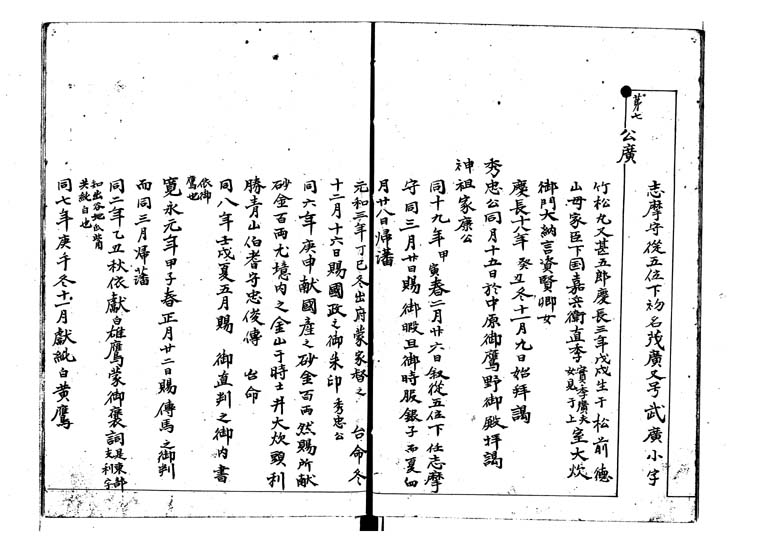 第七
公廣
志摩守從五位下初名茂廣又号武廣小字
竹松丸又甚五郎慶長三年戊戌生于松前德
山母家臣下国嘉兵衛直季實季廣夫如見于上室大炊
御門大納言資賢卿女
慶長十八年癸丑冬十一月九日始拜謁
秀忠公同月十五日於中原御鷹野御殿拜謁
神祖家康公
同十九年甲寅春二月廿六日叙從五位下任志摩
守同三月廿日賜御暇且御時服銀子而夏四
月廿八日帰藩
元和三年丁巳冬出府蒙家督之台命冬
十二月十六日賜國政之御朱印秀忠公
同六年庚申献國産之砂金百両然賜所献
砂金百両尤境内之金山于時土井大炊頭利
勝青山伯耆守忠俊傳台命
同八年壬戌夏五月賜御直判之御内書
依御鷹也
寛永元年甲子春正月廿二日賜傳馬之御判
而同三月帰藩
同二年乙丑秋依獻白雄鷹蒙御褒詞是東部支利宇
知出谷地以背共純白也
同七年庚午冬十一月獻純白黄鷹